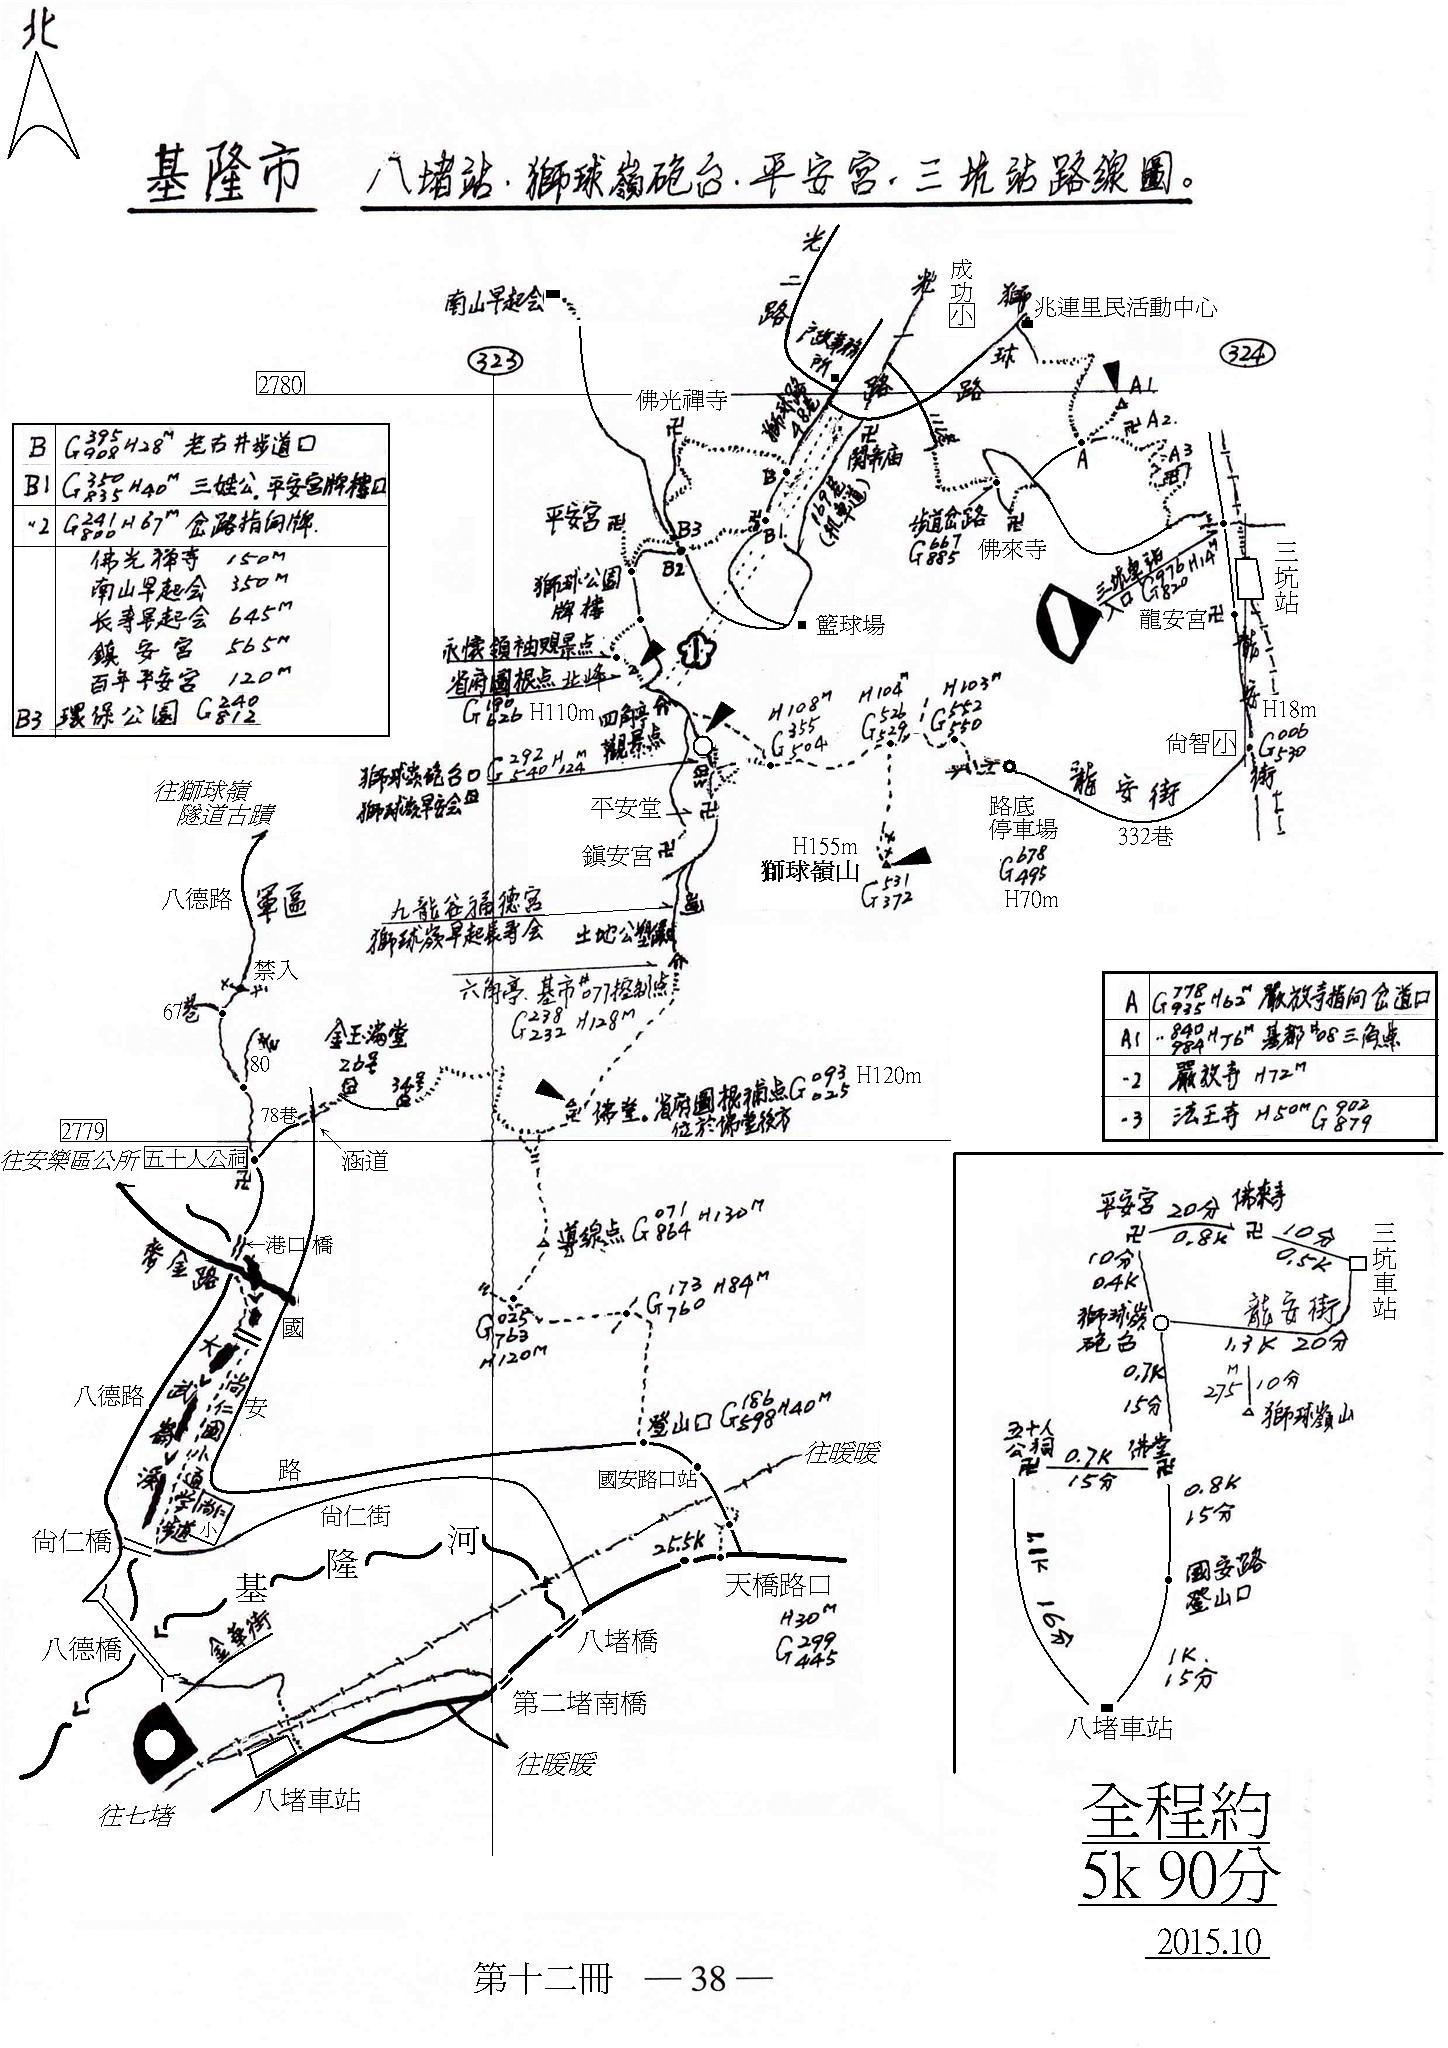 北
基隆市 八堵站.獅球嶺砲台.平安宮.三坑站路線圖。
光二路
光
成功小
獅
球
路
路
兆連里民活動中心
南山早起会
戶政事務所
323
324
2780
佛光禪寺
獅球路48巷
關帝庙
169巷
(机車道)
A1
A2
A3
A
B
B1
B3
B2
平安宮
步道岔路
G667
885
佛來寺
三坑站
三坑車站
入口G976H14M
820
龍安宮
獅球公園
牌樓
籃球場
永懷領袖觀景点
省府圖根点北峰
G190
626
H110m
四角亭
觀景点
H108M
G355
504
H104M
G526
529
H103M
G552
550
龍安街
H18m
G006
530
尚智小
獅球嶺砲台口G292H124M
540
獅球嶺早安会
平安堂
鎮安宮
H155m
獅球嶺山
G531
372
路底
停車場
G678
495
H70m
龍安街
332巷
B G395H28M 老古井步道口
908
B1 G350H40M 三姓公.平安宮牌樓口
835
-2 G241H67M 岔路指向牌.
800
佛光禅寺 150M
南山早起会 350M
长寿早起会 645M
鎮安宮 565M
百年平安宮 120M
B3 環保公園 G240
812
往獅球嶺
隧道古蹟
八德路
軍區
禁入
67巷
80
九龍谷福德宮
獅球嶺早起長寿会
土地公
六角亭.基市#077控制点
G238H128M
232
金玉滿堂
26号
34号
78巷
佛堂。省府圖根補点G093
025
H120m
位於佛堂後方
2779
往安樂區公所
五十人公祠
涵道
←港口橋
麥金路
導線点G071H130M
864
G025
763
H120M
G173H84M
760
八德路
國
安
路
大武崙溪
尚仁國小通学步道
尚仁小
登山口G186H40M
598
國安路口站
往暖暖
尚仁橋
尚仁街
25.5K
天橋路口
H30M
G299
445
基隆河
八德橋
金華街
八堵橋
第二堵南橋
往暖暖
八堵車站
往七堵
A G778H62M 嚴放寺指向岔道口
935
A1 840H76M 基都#08三角點
984
-2 嚴放寺 H72M
-3 法王寺 H50M G902
879
平安宮
20分
0.8K
佛來寺
10分
0.5K
三坑車站
10分
0.4K
獅球嶺
砲台
龍安街
1.3K 20分
0.7K
15分
275M
10分
獅球嶺山
五十人
公祠
0.7K
15分
佛堂
0.8K
15分
1.1K
16分
國安路
登山口
1K.
15分
八堵車站
全程約
5k 90分
2015.10
第十二冊 — 38 —